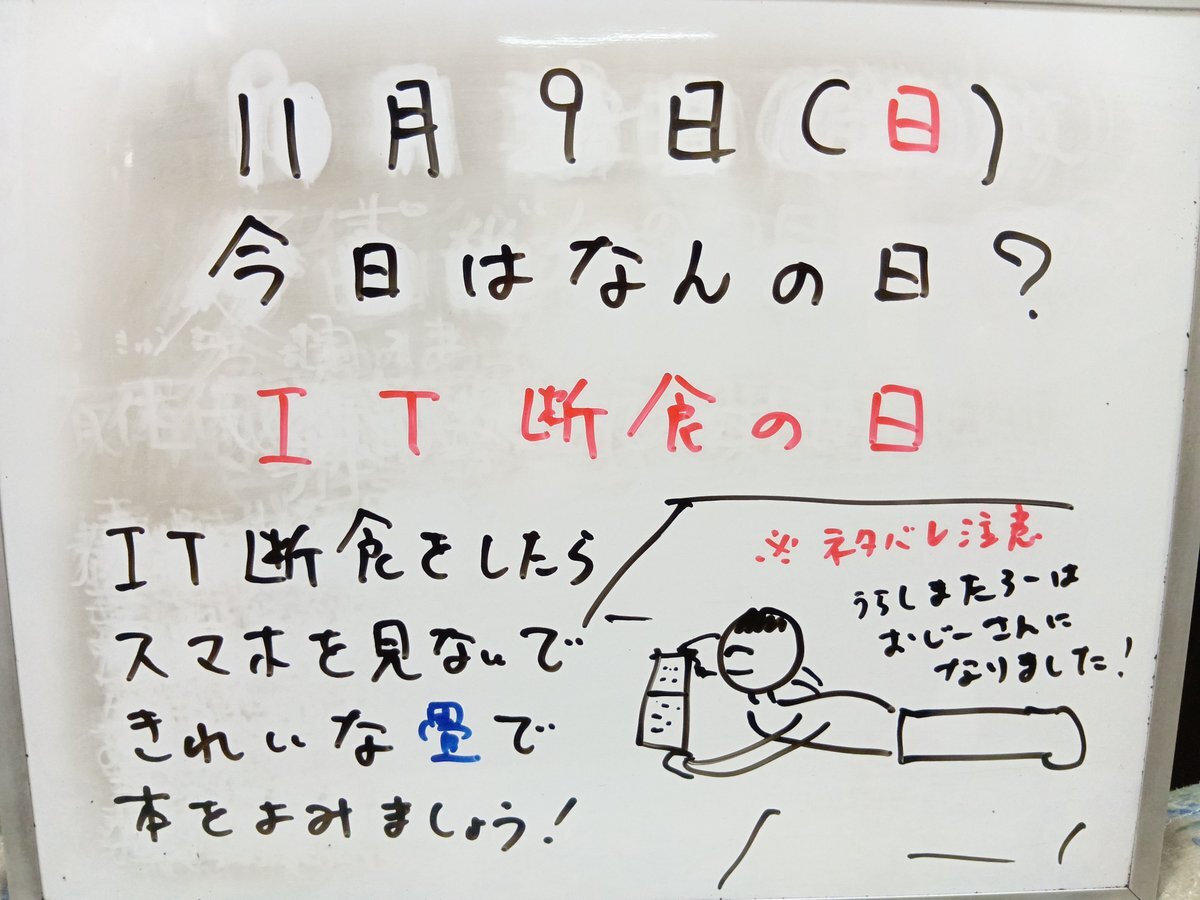 11月9日(日)
今日はなんの日?
IT断食の日
IT断食をしたら
スマホを見ないで
きれいな畳で
本をよみましょう!
※ネタバレ注意
うらしまたろーは
おじーさんに
なりました!